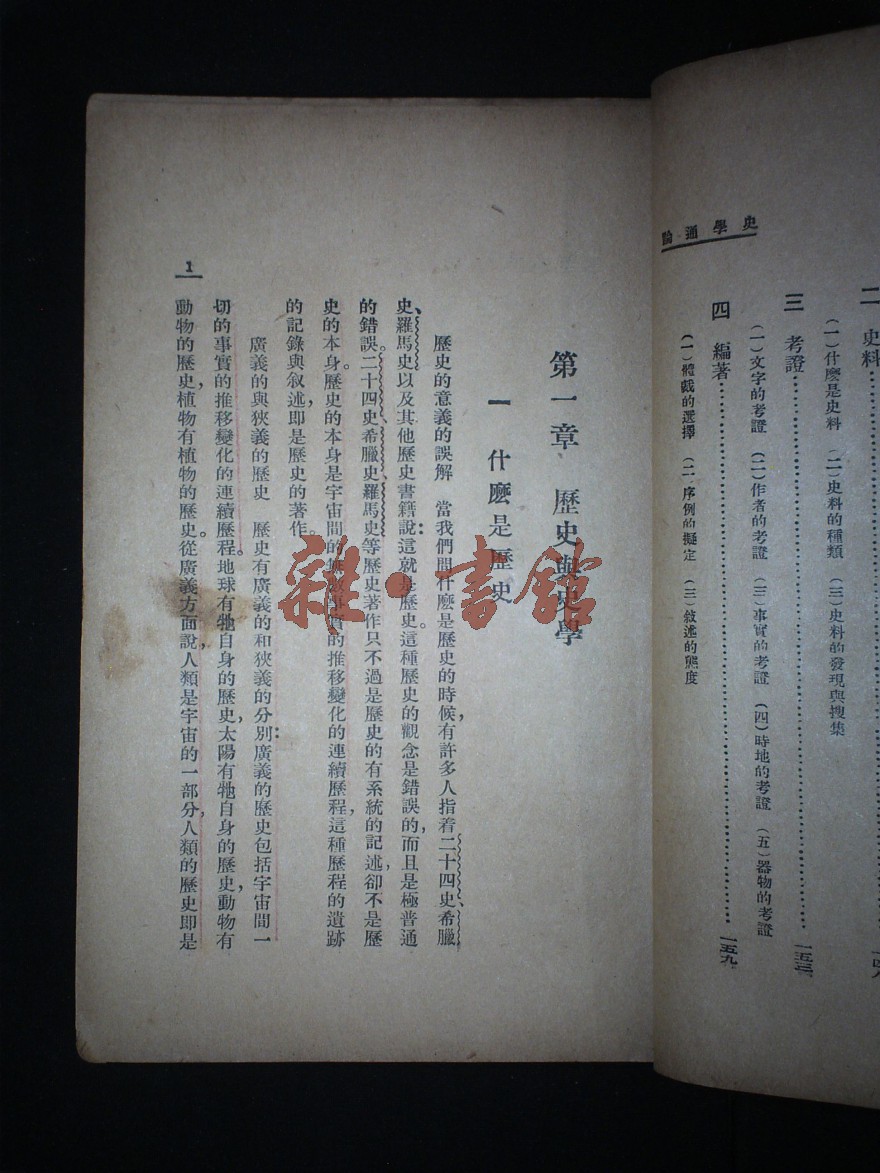 史學通論
二 史料
(一)什麽是史料 (二)史料的種類 (三)史料的發現與搜集
三 考證……一五三
(一)文字的考證 (二)作者的考證 (三)事實的考證 (四)時地的考證 (五)器物的考證
四 編著……一五九
(一)體裁的選擇 (二)序例的擬定 (三)敘述的態度
第一章 歷史與史學
一 什麽是歷史
歷史的意義的誤解 當我們問什麽是歷史的時候,有許多人指着二十四史、希臘
史、羅馬史以及其他歷史書籍說:這就是歷史。這種歷史的觀念是錯誤的,而且是極普通
的錯誤。二十四史、希臘史、羅馬史等歷史著作只不過是歷史的有系統的記述,卻不是歷
史的本身。歷史的本身是宇宙間的無數事實的推移變化的連續歷程,這種歷程的遺跡
的記錄與叙述,即是歷史的著作。
廣義的與狹義的歷史 歷史有廣義的和狹義的分別:廣義的歷史包括宇宙間一
切的事實的推移變化的連續歷程。地球有牠自身的歷史,太陽有牠自身的歷史,動物有
動物的歷史,植物有植物的歷史。從廣義方面說,人類是宇宙的一部分,人類的歷史即是
1
雜·書館